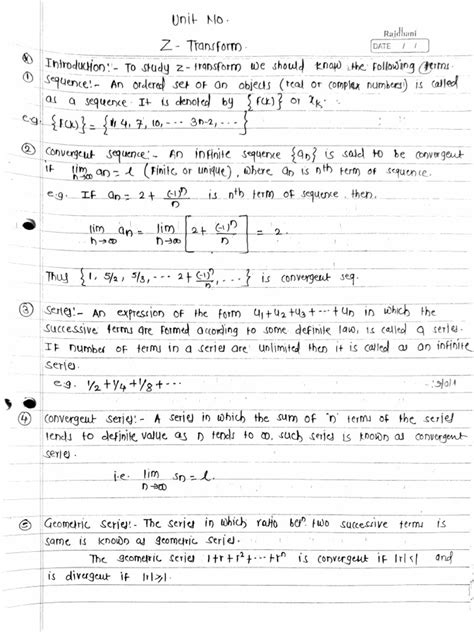 Unit No.
Rajdhani
DATE / /
Z - Transform.
Introduction:- To study z-transform we should know the following terms.
① Sequence:- An ordered set of an objects (real or complex numbers) is called
as a sequence. It is denoted by {f(k)} or xₖ.
e.g. {f(k)} = {1, 4, 7, 10, ... 3n-2, ...}
② Convergent sequence:- An infinite sequence {aₙ} is said to be convergent
if lim n→∞ aₙ = l (finite or unique), where aₙ is nᵗʰ term of sequence.
e.g. If aₙ = 2 + (-1)ⁿ/n is nᵗʰ term of sequence then,
lim n→∞ aₙ = lim n→∞ [2 + (-1)ⁿ/n] = 2.
Thus {1, 5/2, 5/3, ... 2 + (-1)ⁿ/n, ...} is convergent seq.
③ Series:- An expression of the form u₁+u₂+u₃+...+uₙ in which the
successive terms are formed according to some definite law, is called a series.
If number of terms in a series are unlimited then it is called as an infinite
series.
e.g. 1/2 + 1/4 + 1/8 + ...
④ Convergent series:- A series in which the sum of 'n' terms of the series
tends to definite value as n tends to ∞. such series is known as convergent
series.
i.e. lim n→∞ sₙ = l.
⑤ Geometric series:- The series in which ratio betⁿ two successive terms is
same is known as geometric series.
The geometric series 1+r+r²+...+rⁿ is convergent if |r|<1 and
is divergent if |r|≥1.